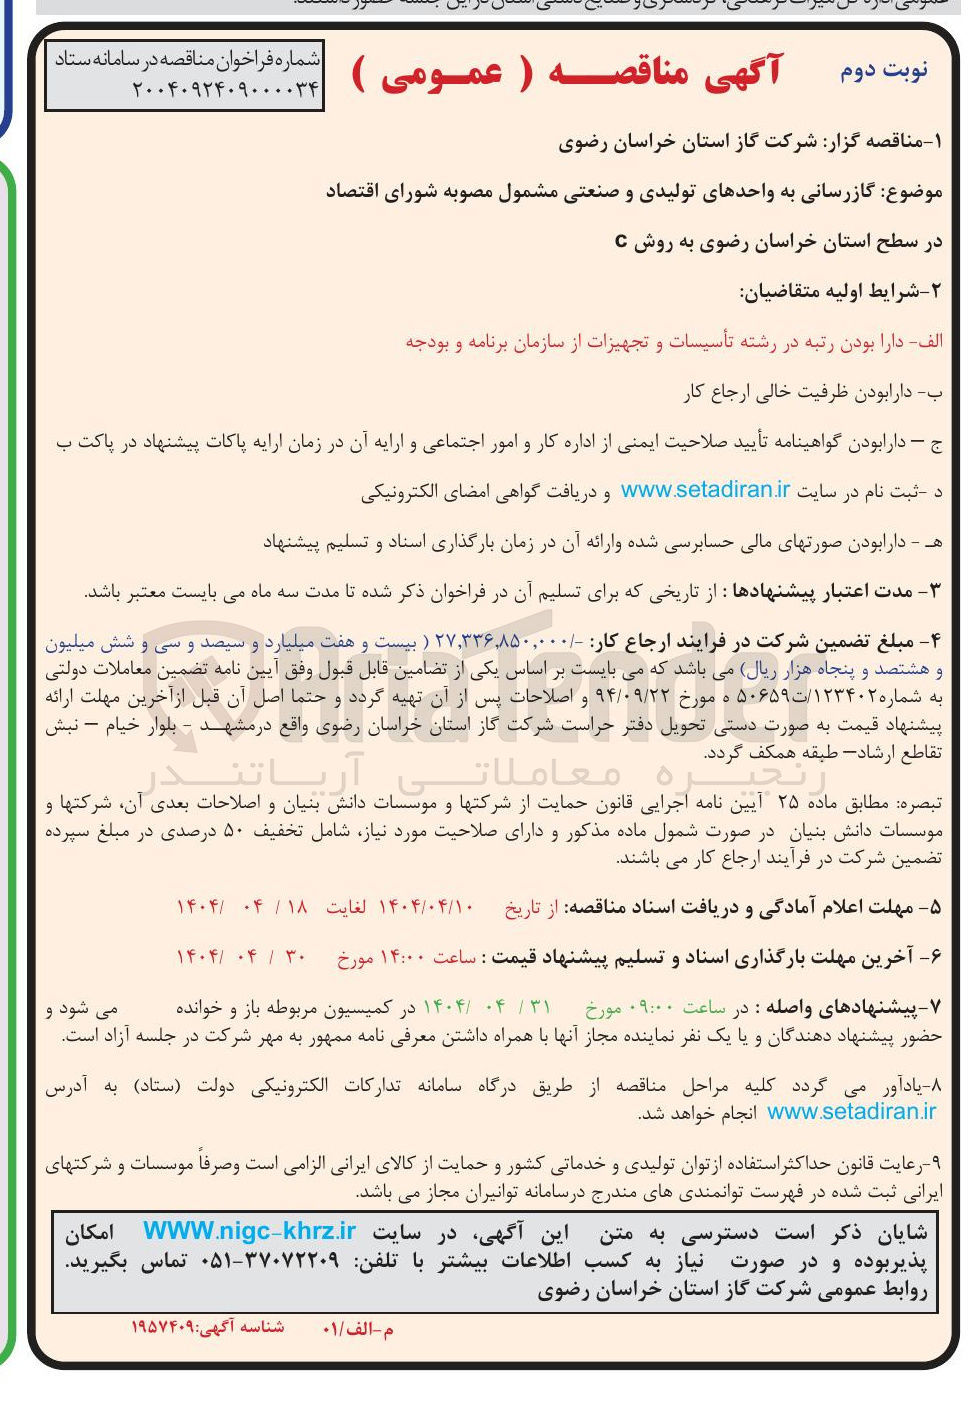 نوبت دوم
آگهی مناقصـــه ( عمــومی )
شماره فراخوان مناقصه در سامانه ستاد
۲۰۰۴۰۹۲۴۰۹۰۰۰۰۳۴
۱-مناقصه گزار: شرکت گاز استان خراسان رضوی
موضوع: گازرسانی به واحدهای تولیدی و صنعتی مشمول مصوبه شورای اقتصاد
در سطح استان خراسان رضوی به روش c
۲-شرایط اولیه متقاضیان:
الف- دارا بودن رتبه در رشته تأسیسات و تجهیزات از سازمان برنامه و بودجه
ب- دارابودن ظرفیت خالی ارجاع کار
ج – دارابودن گواهینامه تأیید صلاحیت ایمنی از اداره کار و امور اجتماعی و ارایه آن در زمان ارایه پاکات پیشنهاد در پاکت ب
د -ثبت نام در سایت www.setadiran.ir و دریافت گواهی امضای الکترونیکی
هـ - دارابودن صورتهای مالی حسابرسی شده وارائه آن در زمان بارگذاری اسناد و تسلیم پیشنهاد
۳- مدت اعتبار پیشنهادها : از تاریخی که برای تسلیم آن در فراخوان ذکر شده تا مدت سه ماه می بایست معتبر باشد.
۴- مبلغ تضمین شرکت در فرایند ارجاع کار: -/۲۷,۳۳۶,۸۵۰,۰۰۰ ( بیست و هفت میلیارد و سیصد و سی و شش میلیون
و هشتصد و پنجاه هزار ریال) می باشد که می بایست بر اساس یکی از تضامین قابل قبول وفق آیین نامه تضمین معاملات دولتی
به شماره۱۲۳۴۰۲/ت۵۰۶۵۹ ه مورخ ۹۴/۰۹/۲۲ و اصلاحات پس از آن تهیه گردد و حتما اصل آن قبل ازآخرین مهلت ارائه
پیشنهاد قیمت به صورت دستی تحویل دفتر حراست شرکت گاز استان خراسان رضوی واقع درمشهــد - بلوار خیام – نبش
تقاطع ارشاد– طبقه همکف گردد.
AriaTender
زنجیـــره معـامـلاتـــی آریــاتنـــدر
تبصره: مطابق ماده ۲۵ آیین نامه اجرایی قانون حمایت از شرکتها و موسسات دانش بنیان و اصلاحات بعدی آن، شرکتها و
موسسات دانش بنیان در صورت شمول ماده مذکور و دارای صلاحیت مورد نیاز، شامل تخفیف ۵۰ درصدی در مبلغ سپرده
تضمین شرکت در فرآیند ارجاع کار می باشند.
۵- مهلت اعلام آمادگی و دریافت اسناد مناقصه: از تاریخ ۱۴۰۴/۰۴/۱۰ لغایت ۱۸ / ۰۴ /۱۴۰۴
۶- آخرین مهلت بارگذاری اسناد و تسلیم پیشنهاد قیمت : ساعت ۱۴:۰۰ مورخ ۳۰ / ۰۴ /۱۴۰۴
۷-پیشنهادهای واصله : در ساعت ۰۹:۰۰ مورخ ۳۱ / ۰۴ /۱۴۰۴ در کمیسیون مربوطه باز و خوانده می شود و
حضور پیشنهاد دهندگان و یا یک نفر نماینده مجاز آنها با همراه داشتن معرفی نامه ممهور به مهر شرکت در جلسه آزاد است.
۸-یادآور می گردد کلیه مراحل مناقصه از طریق درگاه سامانه تدارکات الکترونیکی دولت (ستاد) به آدرس
www.setadiran.ir انجام خواهد شد.
۹-رعایت قانون حداکثراستفاده ازتوان تولیدی و خدماتی کشور و حمایت از کالای ایرانی الزامی است وصرفاً موسسات و شرکتهای
ایرانی ثبت شده در فهرست توانمندی های مندرج درسامانه توانیران مجاز می باشد.
شایان ذکر است دسترسی به متن این آگهی، در سایت WWW.nigc-khrz.ir امکان
پذیربوده و در صورت نیاز به کسب اطلاعات بیشتر با تلفن: ۳۷۰۷۲۲۰۹-۰۵۱ تماس بگیرید.
روابط عمومی شرکت گاز استان خراسان رضوی
م-الف/۰۱ شناسه آگهی:۱۹۵۷۴۰۹